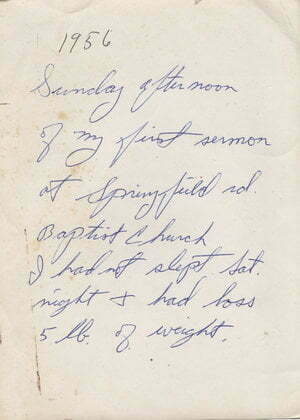 1956
Sunday afternoon
of my first sermon
at Springfield rd.
Baptist Church
I had not slept Sat.
night & had loss
5 lb. of weight.